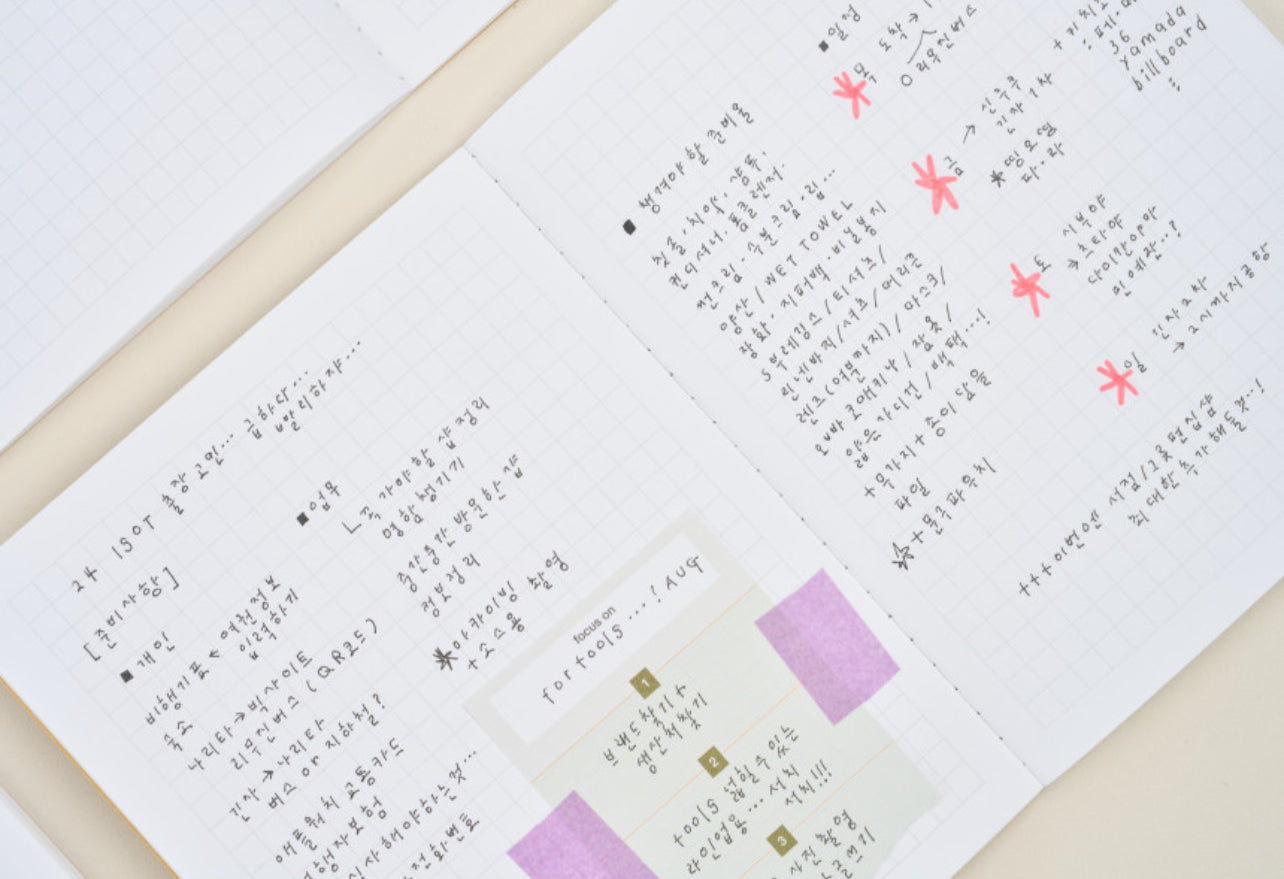 24 ISOT 출장 고민... 급하다...
빨리하쟈...
[준비사항]
■ 개인
비행기표 ← 여권정보
입력하기
숙소
나리타→빅사이트
리무진버스 (QR코드)
긴자 → 나리타
버스 or 지하철?
애플워치 교통카드
여행자보험
심사해야하는것...
전화번호
■ 업무
ㄴ꼭 가야할 샵 정리
명함 챙기기
승산승산 방문한 샵
정보정리
*아카이빙 촬영
+소스용
focus on
for tools ...! AUG
1
브랜드찾기+
생산처찾기
2
tools 넓힐수있는
라인업용... 서치
서치!!!
3
사진촬영
글쓰기
■ 챙겨야할 준비물
칫솔·치약·샴푸,
컨디셔너·폼클렌저.
썬크림·수분크림·립...
양산/WET TOWEL
장화·지퍼백·비닐봉지
5부레깅스/티셔츠/
린넨바지/셔츠/머리끈
렌즈(여분까지)/마스크/
얇은가디건/백팩...!
+목가지+종이담을
파일
☆+물쿠파우치
■ 일정
목 도착→
O 리무진버스
금 → 신주쿠
긴자1차
*띵호땅
파·라
+키치죠
36
yamada
billboard
⋮
토 시부야
→츠타야
다이칸야마
일 긴자2차
→ 2시까지공항
+++이번엔 서점/그로편집샵
최대한 추가해둘것...!